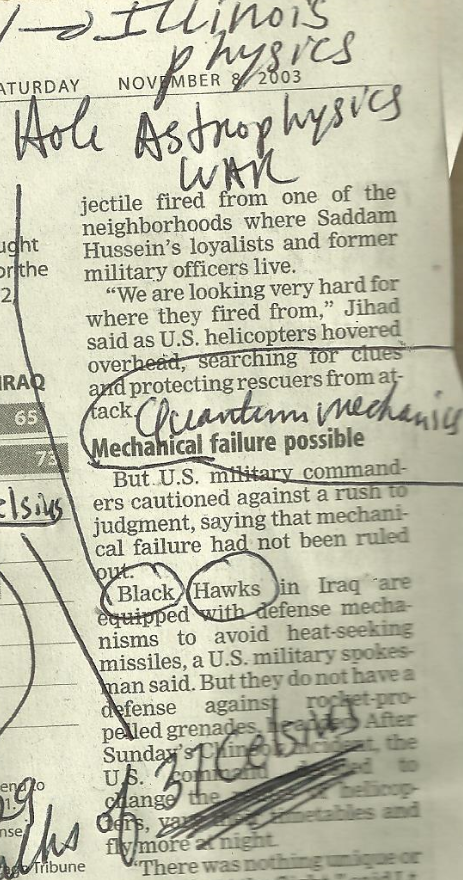 Illinois
physics
ATURDAY NOVEMBER 8, 2003
Hole Astrophysics
WAR
jectile fired from one of the
neighborhoods where Saddam
Hussein's loyalists and former
military officers live.
"We are looking very hard for
where they fired from," Jihad
said as U.S. helicopters hovered
overhead, searching for clues
and protecting rescuers from at-
tack.
Quantum mechanics
Mechanical failure possible
But U.S. military command-
ers cautioned against a rush to
judgment, saying that mechani-
cal failure had not been ruled
out.
Black Hawks in Iraq are
equipped with defense mecha-
nisms to avoid heat-seeking
missiles, a U.S. military spokes-
man said. But they do not have a
defense against rocket-pro-
pelled grenades, After
Sunday's the
U.S. to
change the helicop-
ters, timetables and
fly more at night.
"There was nothing unique or
31 Celsius
of
ught
or the
2,
IRAQ
65
73
elsius
end to
29
nse
Tribune